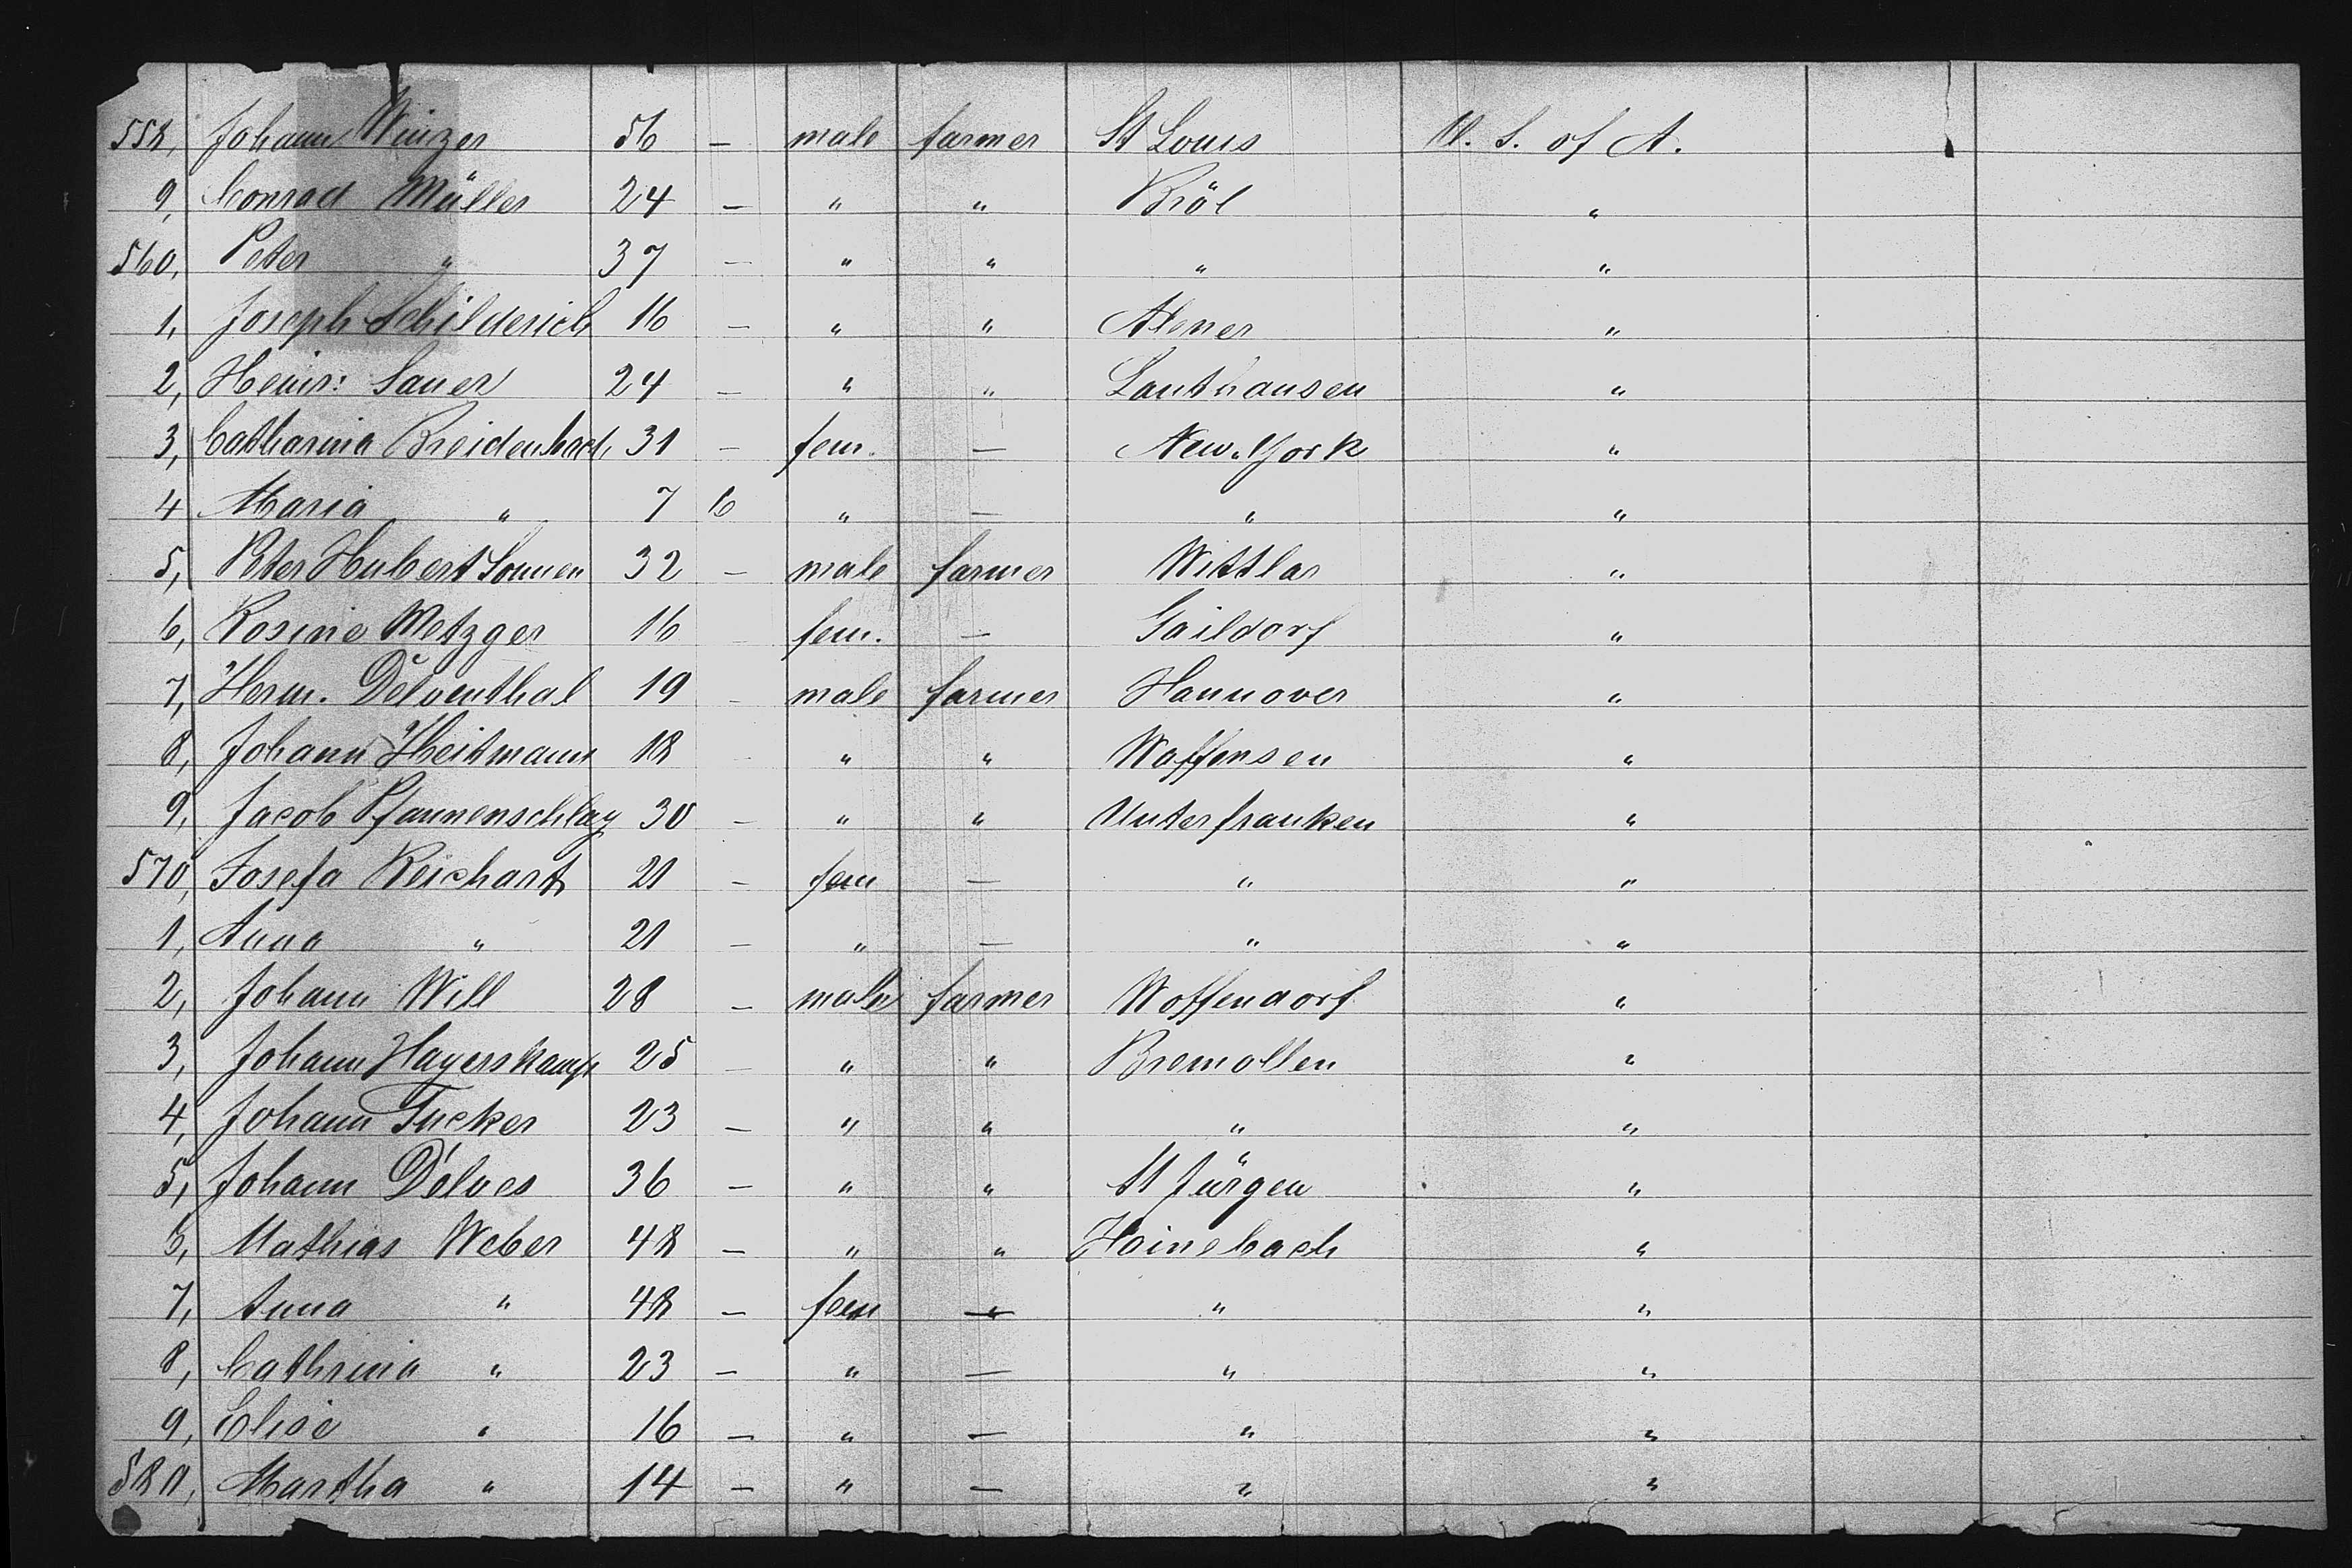 558, Johann Winzer 56 — male farmer St Louis U. S. of A.
9, Conrad Müller 24 — " " Bröl "
560, Peter " 37 — " " " "
1, Joseph Schilderich 16 — " " Atener "
2, Heinr: Sauer 24 — " " Lauthausen "
3, Catharina Breidenbach 31 — fem. — New-York "
4 Maria " 7 6 " — " "
5, Peter Hubert Sonnen 32 — male farmer Wittlar "
6, Rosine Metzger 16 fem. — Gaildorf "
7, Herm. Delventhal 19 — male farmer Hannover "
8, Johann Heitmann 18 — " " Waffensen "
9, Jacob Pfannenschlag 30 — " " Unterfranken "
570, Josefa Reichart 21 — fem — " "
1, Anna " 21 — " — " "
2, Johann Will 28 — male farmer Woffendorf "
3, Johann Hayerskamp 25 — " " Bremollen "
4, Johann Tucker 23 — " " " "
5, Johann Delves 36 — " " St Jürgen "
6, Mathias Weber 48 — " " Heinebach "
7, Anna " 48 — fem — " "
8, Cathrina " 23 — " — " "
9, Elise " 16 — " — " "
580, Martha " 14 — " — " "